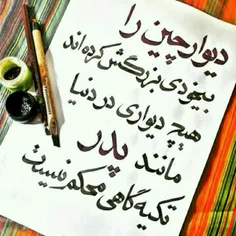 دیوار چین را
بیخودی بزرگش کرده‌اند
هیچ دیواری در دنیا
مانند پدر
تکیه گاهی محکم نیست